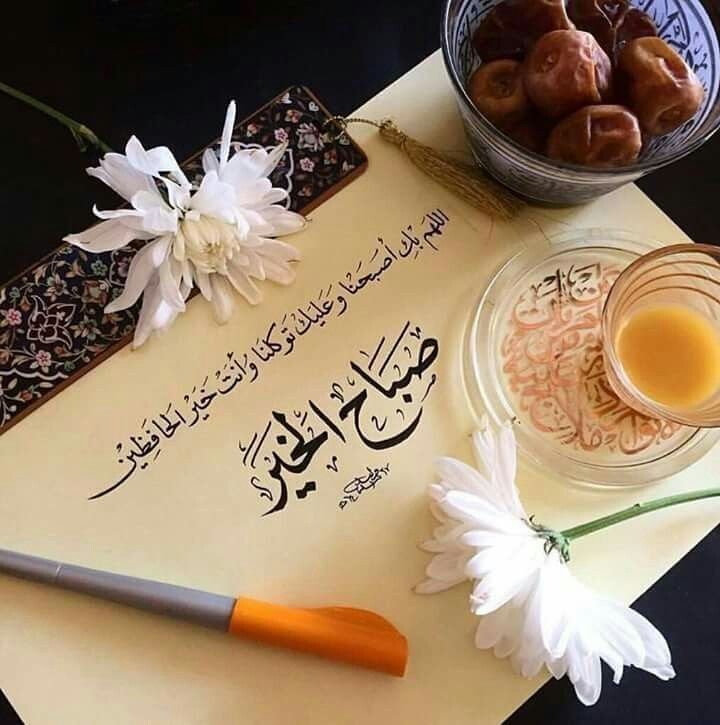 اللهم بك أصبحنا وعليك توكلنا وأنت خير الحافظين
صباح الخير